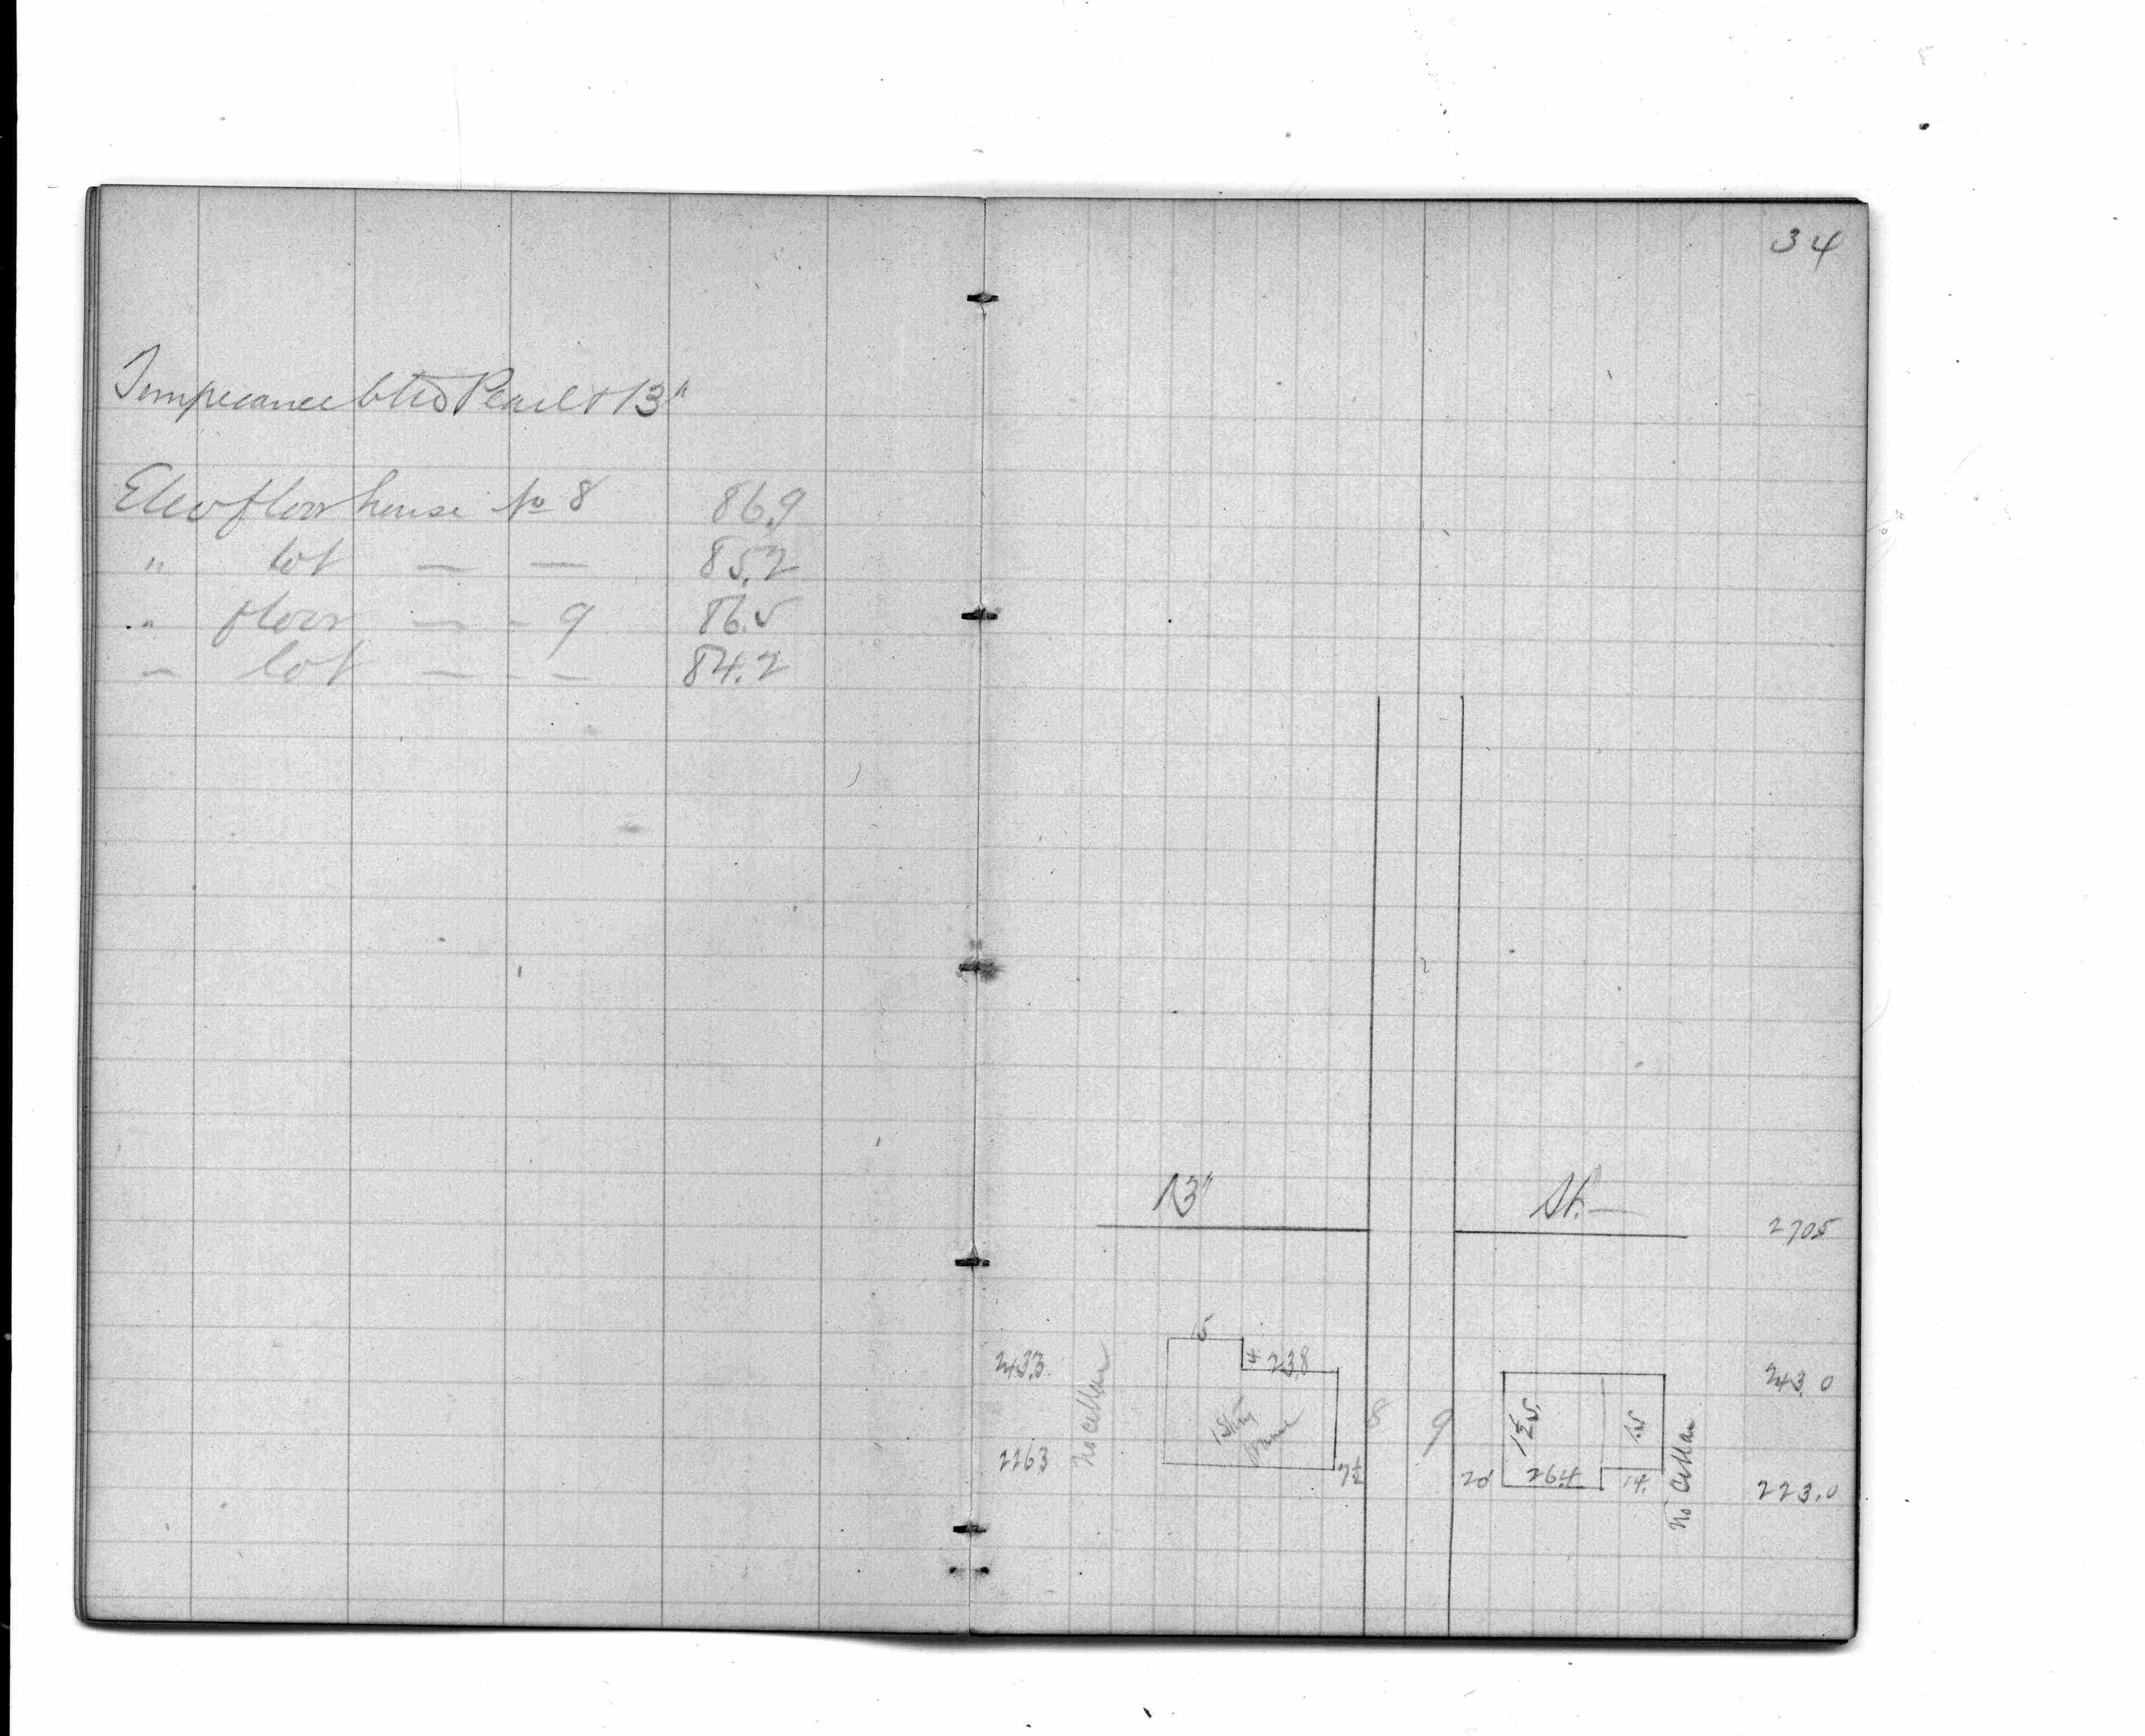 34
Temperance btw Pearl & 13"
Elev floor house No 8 86.9
" lot — — 85.2
" floor — - 9 86.5
- lot — - - 84.2
13" St. —
2705
15
4 23.8
243.3
No Cellar
1 Story
8 9
1½ S.
1 S
243.0
226.3
7½
20
26.4
14.
No Cellar
223.0